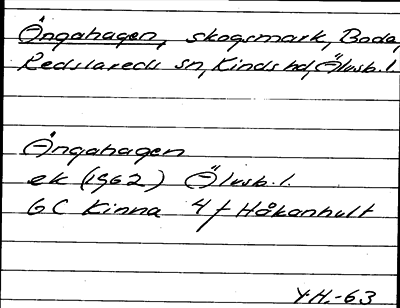 Ängahagen, skogsmark, Boda,
Redslareds sn, Kinds hd, Älvsb. l.
Ängahagen
ek (1962) Älvsb. l.
6C Kinna 4f Håkanhult
Y.H.-63